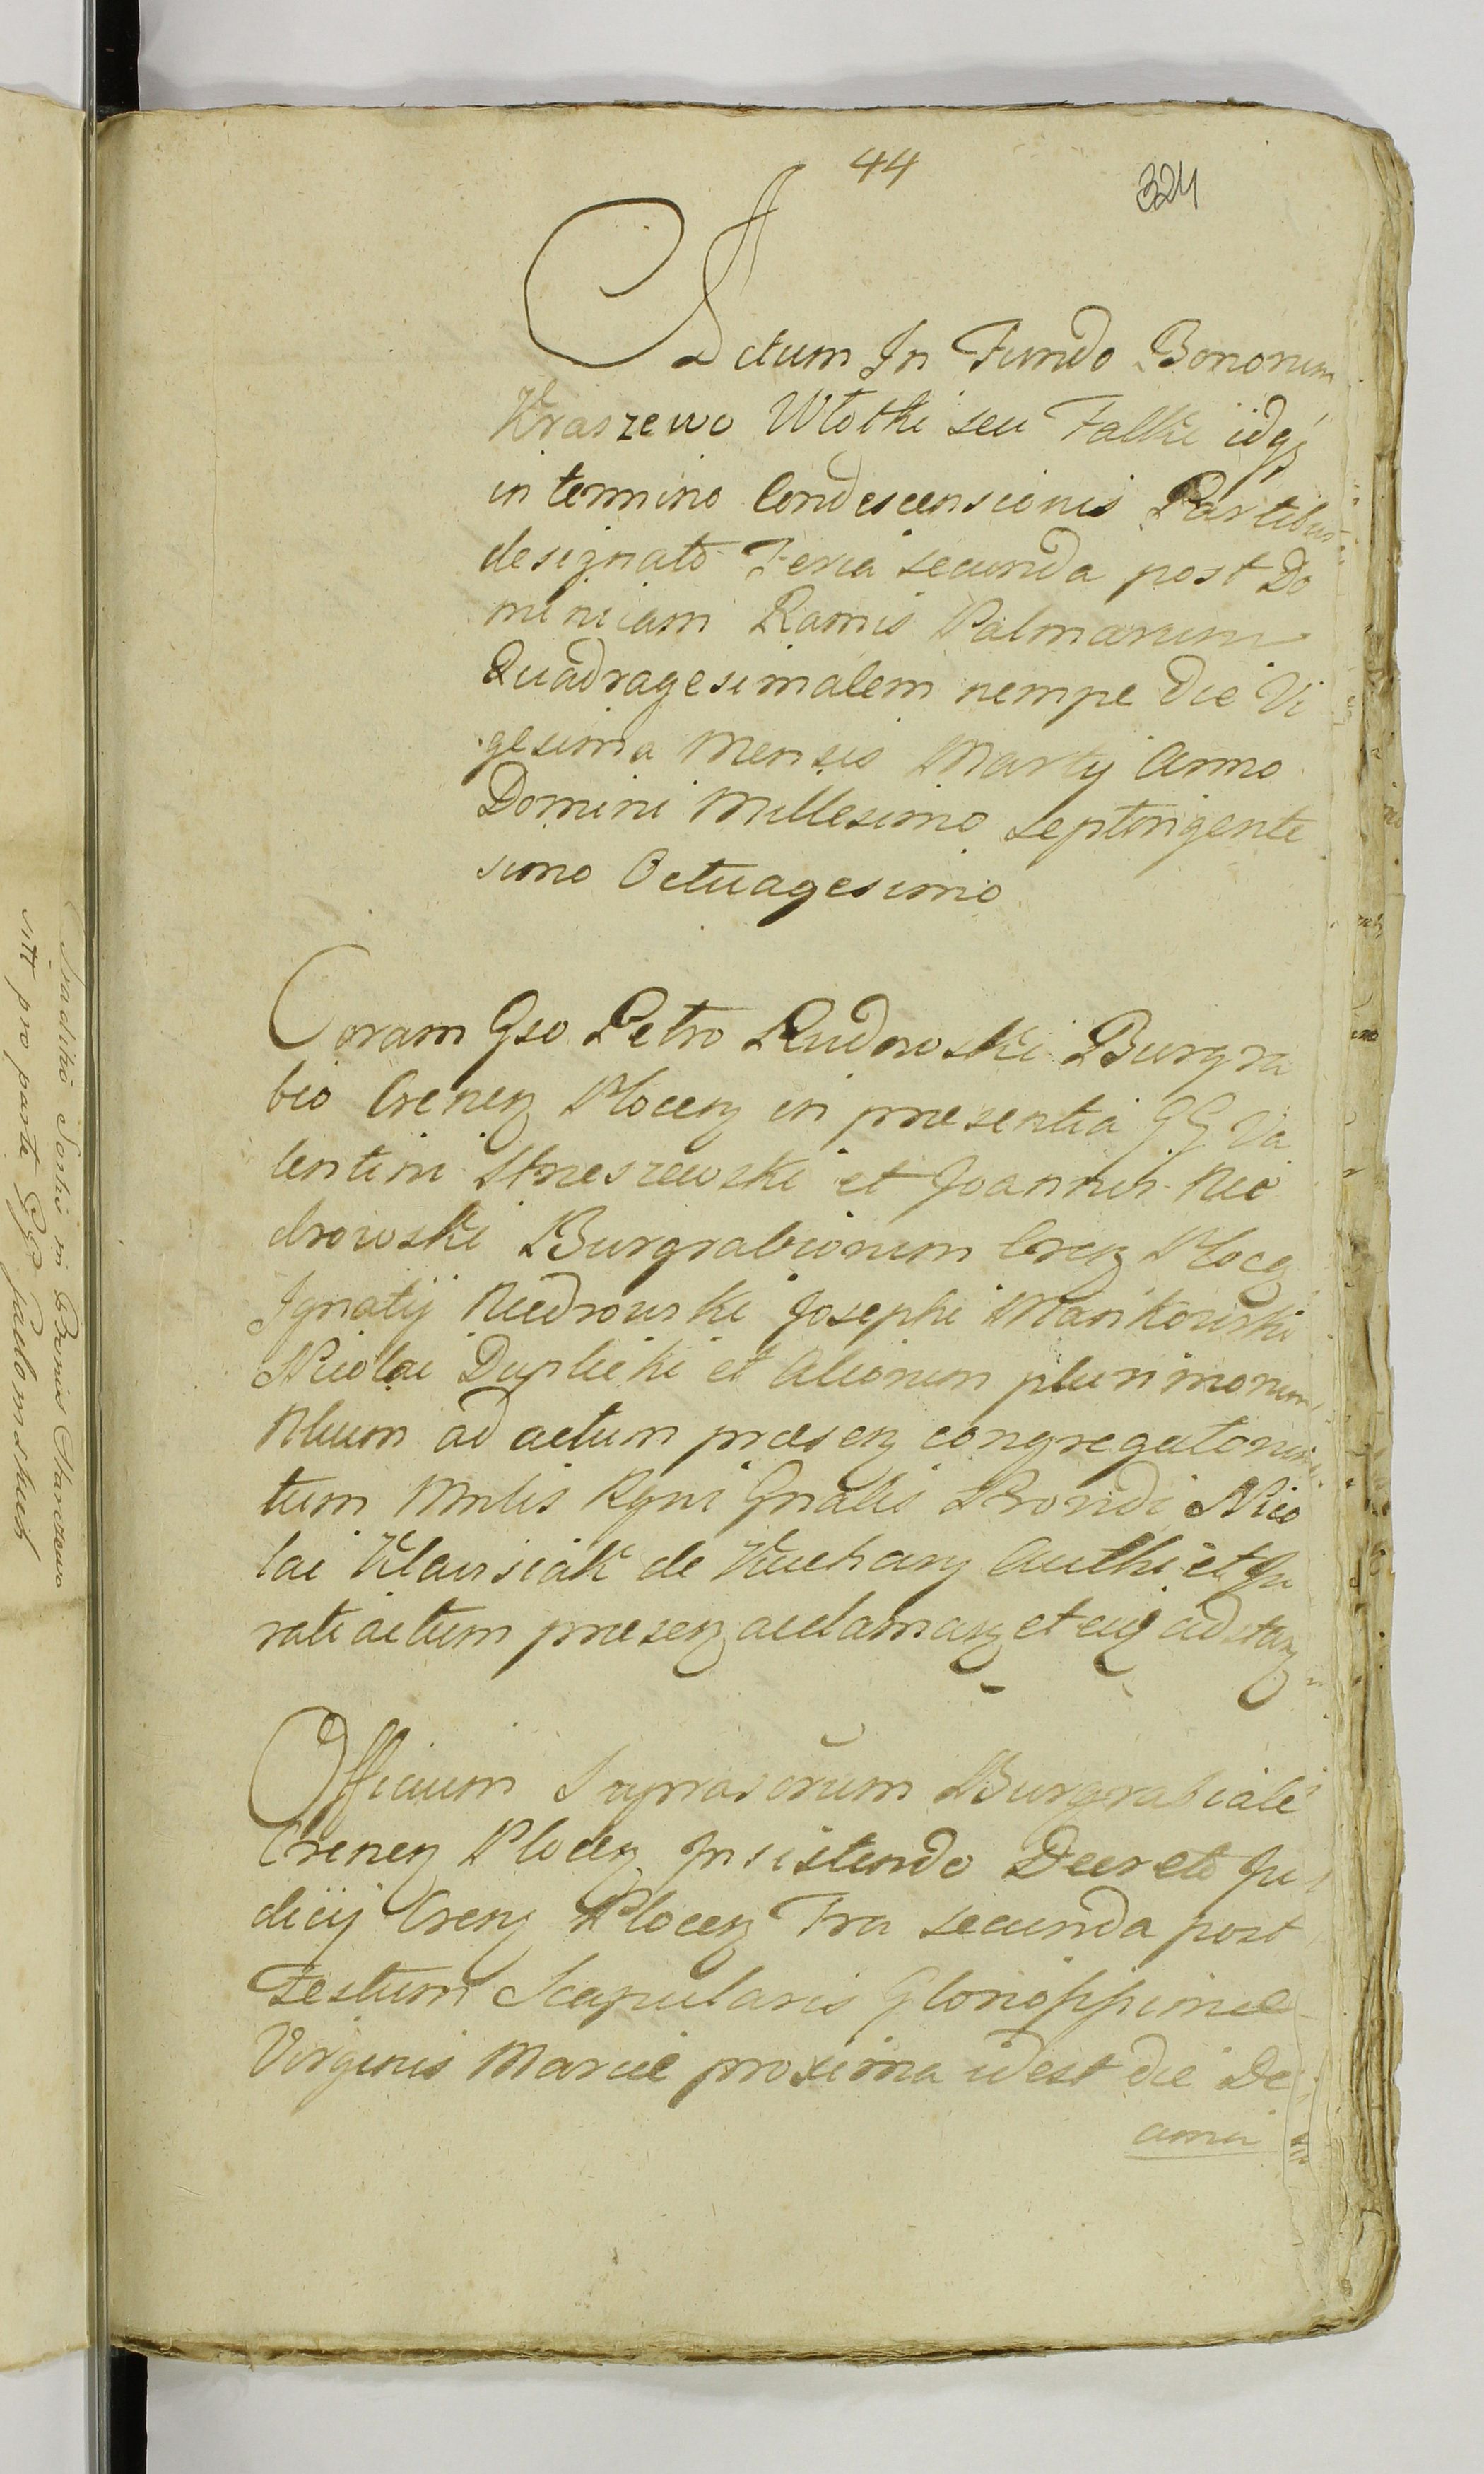 44
324
Actum In Fundo Bonorum
Kraszewo Włotki seu Falki idq3
in termino Condescensionis Partibus
designato Feria secunda post Do
minicam Ramis Palmarum
Quadragesimalem nempe die Vi
gesima Mensis Martij Anno
Domini Millesimo septingente
simo Octuagesimo
Coram Gso Petro Rudowski Burgra
bio Crenen Plocen in præsentia GG Va
lentini Streszewski et Joannis Nie
drowski Burgrabiorum Cren Ploc
Ignatij Niedrowski Josephi Mankowski
Nicolai Duplicki et Aliorum plurimorum
Nlium ad actum præsen congregatorum
tum Mnlis Rgni Gnalis Prondi Nico
lai Klausiak de Kuchary Authi et Ju
rati actum præsen aclaman et eius adstan
Officium suprascrum Burgrabiale
Crenen Plocen Insistendo Decreto Ju
dicij Cren Plocen Fra secunda post
Festum Scapularis Gloriossimæ
Virginis Mariæ proxima idest die De
cima
Traditio Sortis in Bonis Starczewo
sitt pro parte GGD